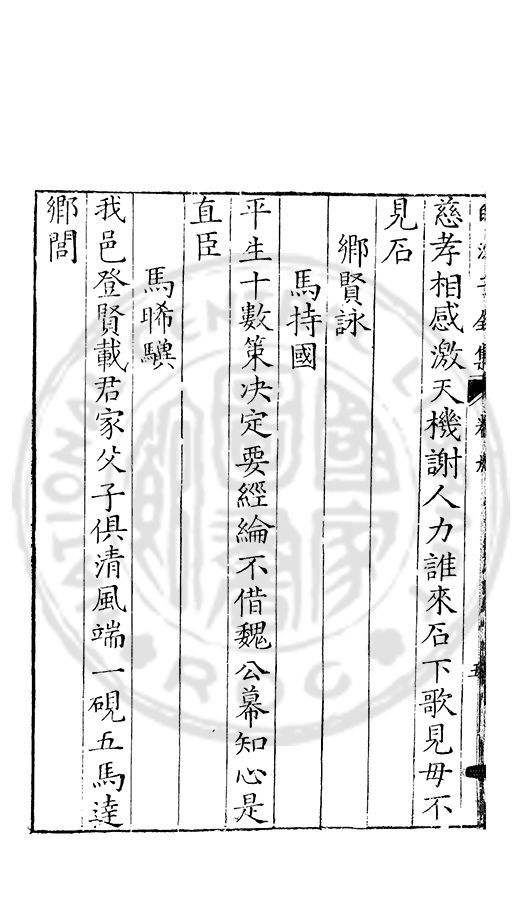 慈孝相感激天機謝人力誰來石下歌見母不
見石
鄉賢詠
馬持國
平生十數策決定要經綸不借魏公幕知心是
直臣
馬晞驥
我邑登賢載君家父子俱清風端一硯五馬達
鄉閭